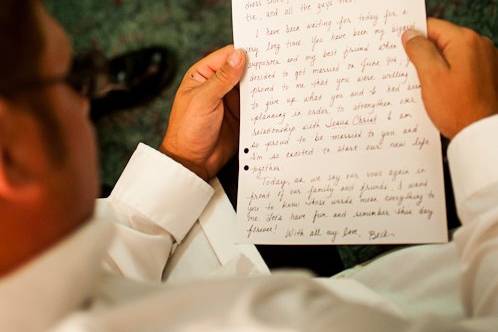 dress shirt,
tie, and all the guys
I have been waiting for today for a
very long time. You have been my biggest
supporter and my best friend when
decided to get married on June
proved to me that you were willing
to give up what you and I had been
planning in order to strengthen our
relationship with Jesus Christ. I am
so proud to be married to you and
I'm so excited to start our new life
together.
Today, as we say our vows again in
front of our family and friends, I want
you to know those words mean everything to
me. Lets have fun and remember this day
forever! With all my love,